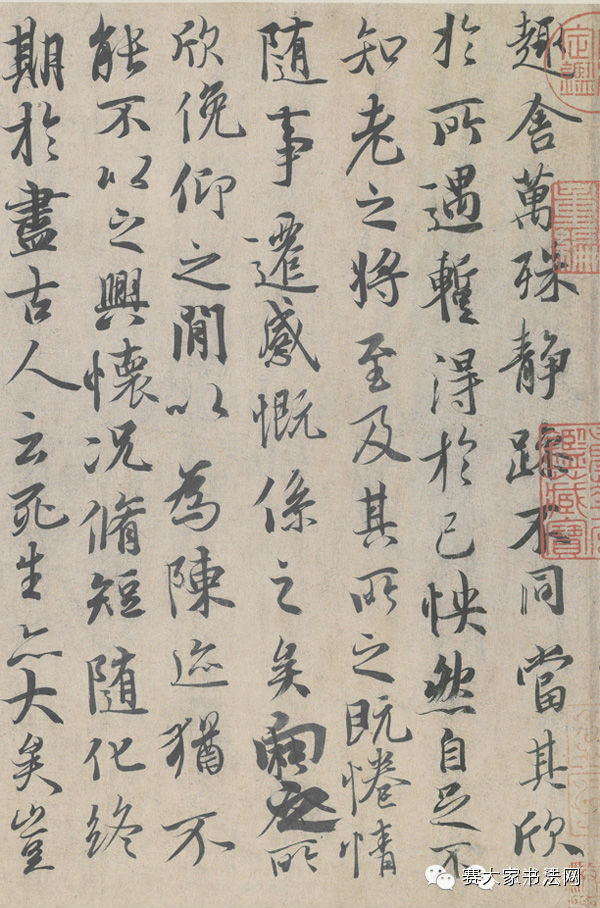 趣舍萬殊静躁不同當其欣
於所遇蹔得於己怏然自足不
知老之將至及其所之既惓情
随事遷感慨係之矣向之所
欣俛仰之閒以為陳迹猶不
能不以之興懷况脩短随化終
期於盡古人云死生亦大矣豈
赛大家书法网